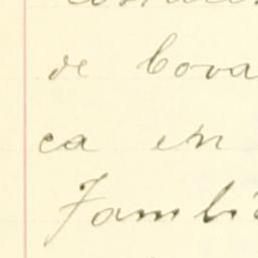 de Cova
ca en
Famili